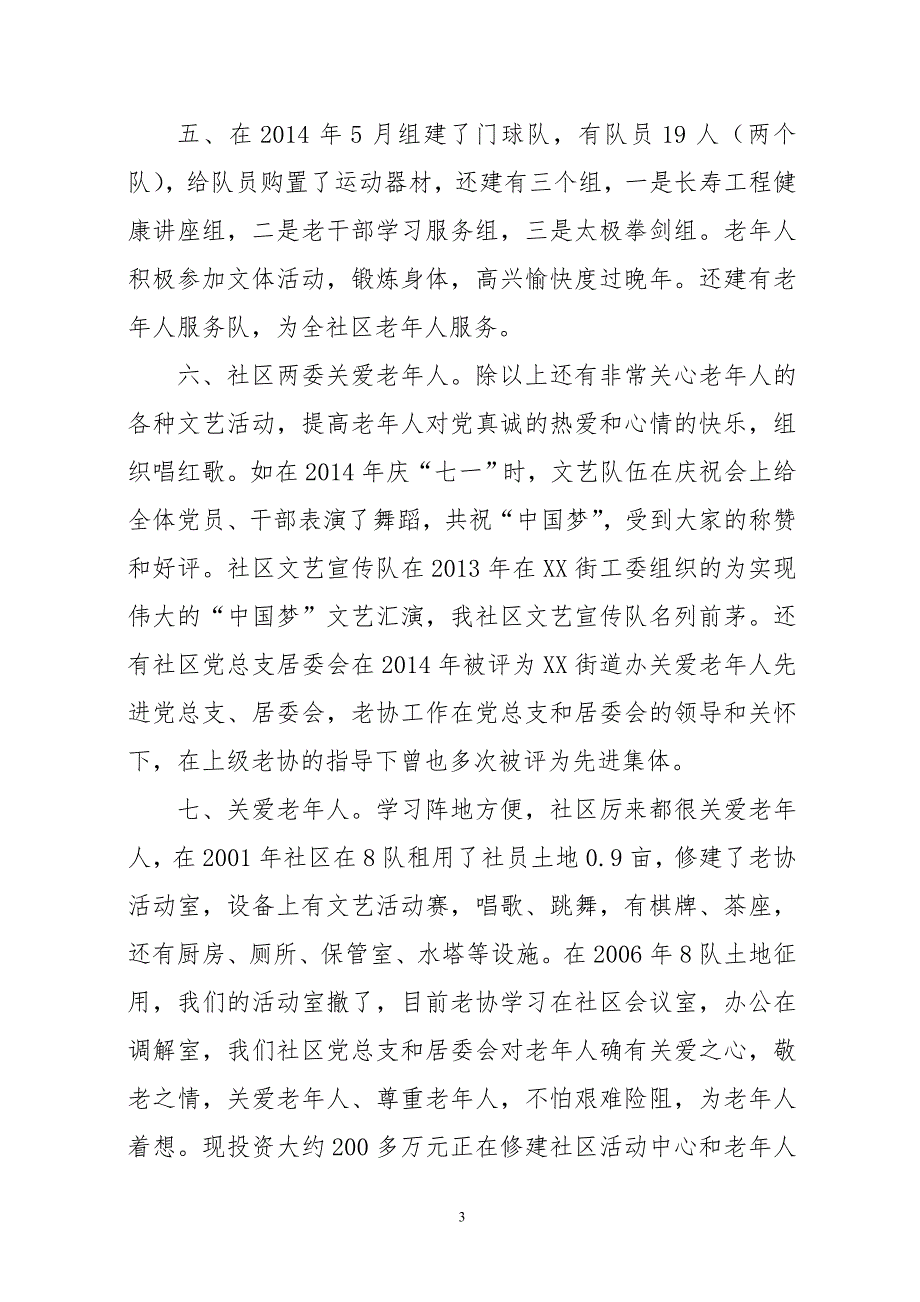 五、在 2014 年 5 月组建了门球队，有队员 19 人（两个
队），给队员购置了运动器材，还建有三个组，一是长寿工程健
康讲座组，二是老干部学习服务组，三是太极拳剑组。老年人
积极参加文体活动，锻炼身体，高兴愉快度过晚年。还建有老
年人服务队，为全社区老年人服务。
六、社区两委关爱老年人。除以上还有非常关心老年人的
各种文艺活动，提高老年人对党真诚的热爱和心情的快乐，组
织唱红歌。如在 2014 年庆“七一”时，文艺队伍在庆祝会上给
全体党员、干部表演了舞蹈，共祝“中国梦”，受到大家的称赞
和好评。社区文艺宣传队在 2013 年在 XX 街工委组织的为实现
伟大的“中国梦”文艺汇演，我社区文艺宣传队名列前茅。还
有社区党总支居委会在 2014 年被评为 XX 街道办关爱老年人先
进党总支、居委会，老协工作在党总支和居委会的领导和关怀
下，在上级老协的指导下曾也多次被评为先进集体。
七、关爱老年人。学习阵地方便，社区厉来都很关爱老年
人，在 2001 年社区在 8 队租用了社员土地 0.9 亩，修建了老协
活动室，设备上有文艺活动赛，唱歌、跳舞，有棋牌、茶座，
还有厨房、厕所、保管室、水塔等设施。在 2006 年 8 队土地征
用，我们的活动室撤了，目前老协学习在社区会议室，办公在
调解室，我们社区党总支和居委会对老年人确有关爱之心，敬
老之情，关爱老年人、尊重老年人，不怕艰难险阻，为老年人
着想。现投资大约 200 多万元正在修建社区活动中心和老年人
3